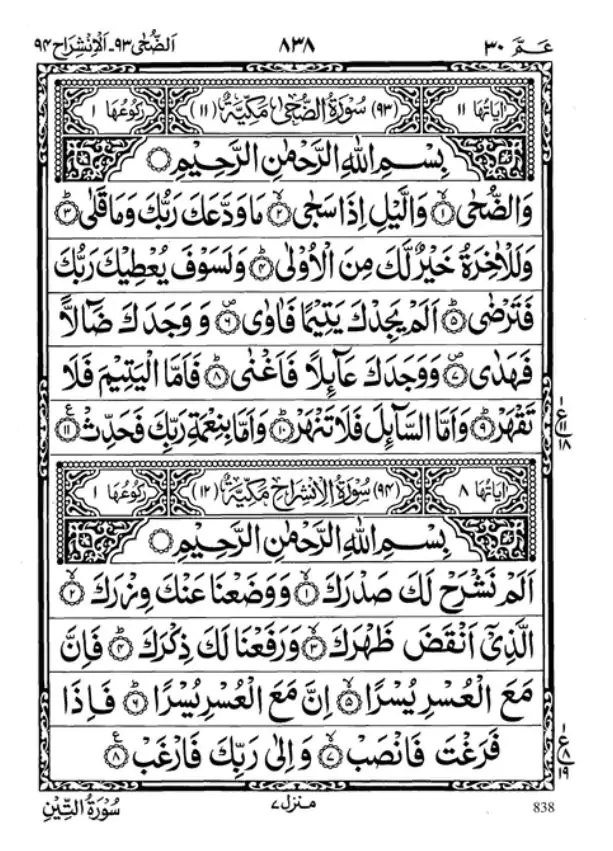 عَمَّ ۳۰ ۸۳۸ اَلضُّحٰى ۹۳- اَلْاِنْشِرَاح ۹۴
اٰيَاتُهَا ۱۱ (۹۳) سُوْرَةُ الضُّحٰى مَكِّيَّةٌ (۱۱) رُكُوْعُهَا ۱
بِسْمِ اللّٰهِ الرَّحْمٰنِ الرَّحِيْمِ
وَالضُّحٰى ۙ۱ وَالَّيْلِ اِذَا سَجٰى ۙ۲ مَا وَدَّعَكَ رَبُّكَ وَمَا قَلٰى ؕ۳
وَلَلْاٰخِرَةُ خَيْرٌ لَّكَ مِنَ الْاُوْلٰى ؕ۴ وَلَسَوْفَ يُعْطِيْكَ رَبُّكَ
فَتَرْضٰى ؕ۵ اَلَمْ يَجِدْكَ يَتِيْمًا فَاٰوٰى ۪۶ وَوَجَدَكَ ضَآلًّا
فَهَدٰى ۪۷ وَوَجَدَكَ عَآىِٕلًا فَاَغْنٰى ؕ۸ فَاَمَّا الْيَتِيْمَ فَلَا
تَقْهَرْ ؕ۹ وَاَمَّا السَّآىِٕلَ فَلَا تَنْهَرْ ؕ۱۰ وَاَمَّا بِنِعْمَةِ رَبِّكَ فَحَدِّثْ ۱۱ ع
۱ ع ۱۱ ۱۸
اٰيَاتُهَا ۸ (۹۴) سُوْرَةُ الْاِنْشِرَاحِ مَكِّيَّةٌ (۱۲) رُكُوْعُهَا ۱
بِسْمِ اللّٰهِ الرَّحْمٰنِ الرَّحِيْمِ
اَلَمْ نَشْرَحْ لَكَ صَدْرَكَ ۙ۱ وَوَضَعْنَا عَنْكَ وِزْرَكَ ۙ۲
الَّذِيْٓ اَنْقَضَ ظَهْرَكَ ۙ۳ وَرَفَعْنَا لَكَ ذِكْرَكَ ؕ۴ فَاِنَّ
مَعَ الْعُسْرِ يُسْرًا ۙ۵ اِنَّ مَعَ الْعُسْرِ يُسْرًا ؕ۶ فَاِذَا
فَرَغْتَ فَانْصَبْ ۙ۷ وَاِلٰى رَبِّكَ فَارْغَبْ ۸ ع
۱ ع ۸ ۱۹
838 منزل ۷ سُوْرَةُ التِّيْنِ